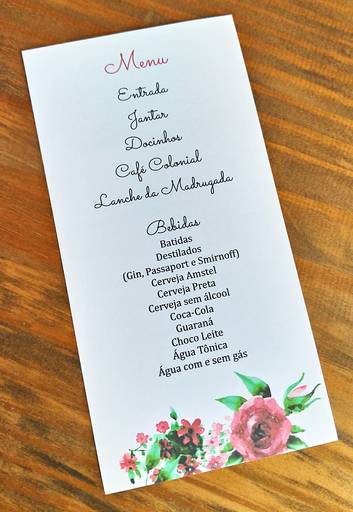 Menu
Entrada
Jantar
Docinhos
Café Colonial
Lanche da Madrugada
Bebidas
Batidas
Destilados
(Gin, Passaport e Smirnoff)
Cerveja Amstel
Cerveja Preta
Cerveja sem álcool
Coca-Cola
Guaraná
Choco Leite
Água Tônica
Água com e sem gás